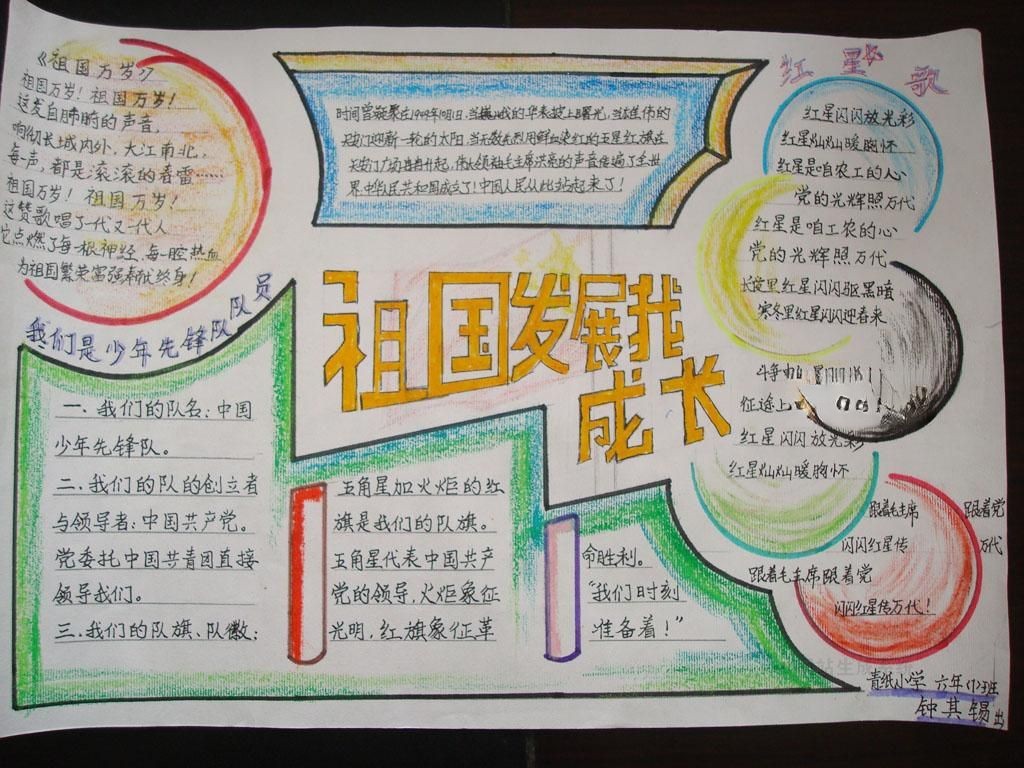 《祖国万岁》
祖国万岁！祖国万岁！
这发自肺腑的声音，
响彻长城内外，大江南北，
每一声，都是滚滚的春雷……
祖国万岁！祖国万岁！
这赞歌唱了一代又一代人
它点燃了每一根神经，每一腔热血
为祖国繁荣富强奉献终身！
时间曾凝聚在1949年10月1日，当巍峨的华表披上曙光，当雄伟的
天安门迎新一轮的太阳，当无数先烈用鲜血染红的五星红旗在
天安门广场冉冉升起，伟大领袖毛主席洪亮的声音传遍了全世
界中华人民共和国成立了！中国人民从此站起来了！
祖国发展我
成长
我们是少年先锋队队员
一、我们的队名：中国
少年先锋队。
二、我们的队的创立者
与领导者：中国共产党。
党委托中国共青团直接
领导我们。
三、我们的队旗、队徽：
五角星加火炬的红
旗是我们的队旗。
五角星代表中国共产
党的领导，火炬象征
光明，红旗象征革
命胜利。
“我们时刻
准备着！”
红星歌
红星闪闪放光彩
红星灿灿暖胸怀
红星是咱农工的人心
党的光辉照万代
红星是咱工农的心
党的光辉照万代
长夜里红星闪闪驱黑暗
寒冬里红星闪闪迎春来
斗争中
征途上
红星闪闪放光彩
红星灿灿暖胸怀
跟着毛主席 跟着党
闪闪红星传 万代
跟着毛主席跟着党
闪闪红星传万代！
青纸小学 六年(1)班
钟其锡 出